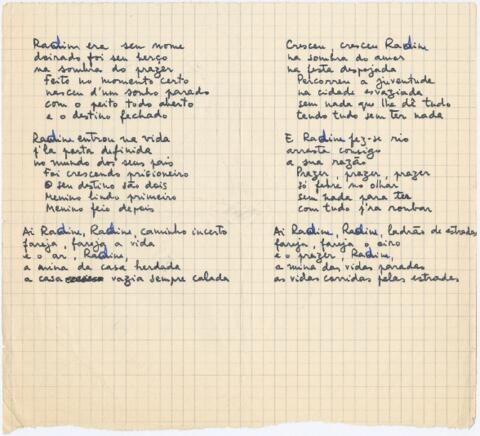 Radine era seu nome
doirado foi seu berço
na sombra do prazer
Feito no momento certo
nasceu d'um sonho parado
com o peito todo aberto
e o destino fechado
Radine entrou na vida
p'la porta definida
no mundo dos seus pais
Foi crescendo prisioneiro
O seu destino são dois
Menino lindo primeiro
Menino feio depois
Ai Radine, Radine, caminho incerto
fareja, fareja a vida
e o ar, Radine,
a mina da casa herdada
a casa vazia sempre calada
Cresceu, cresceu Radine
na sombra do amor
na festa despojada
Percorreu a juventude
na cidade esvaziada
sem nada que lhe dê tudo
tendo tudo sem ter nada
E Radine fez-se rio
arrasta consigo
a sua razão
Prazer, prazer, prazer
só febre no olhar
sem nada para ter
com tudo p'ra roubar
Ai Radine, Radine, ladrão de estradas
fareja, fareja o oiro
e o prazer, Radine,
a mina das vidas paradas
as vidas corridas pelas estradas